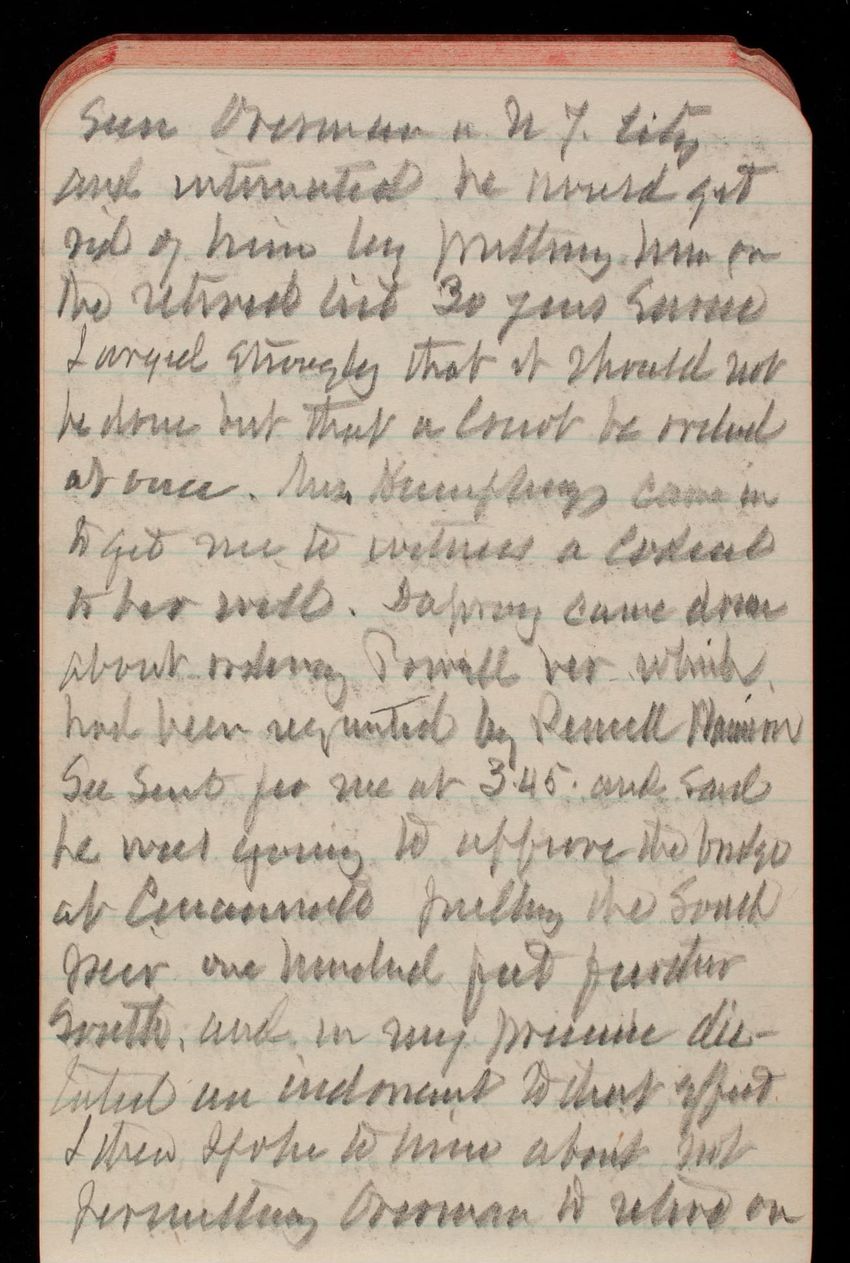 seen Overman in N Y. City
and intimated he would get
rid of him by putting him on
the retired list 30 years Service
I urged strongly that it should not
be done but that a Court be ordered
at once. Mrs Humphreys came in
to get me to witness a Codicil
to her will. came down
about ordering Powell her which
had been requested by
Sec Sent for me at 3.45. and said
he was going to approve the bridge
at Cincinnati putting the South
pier one hundred feet further
South, and in my presence dic-
tated an indorsement to that effect
I then spoke to him about not
permitting Overman to retire on